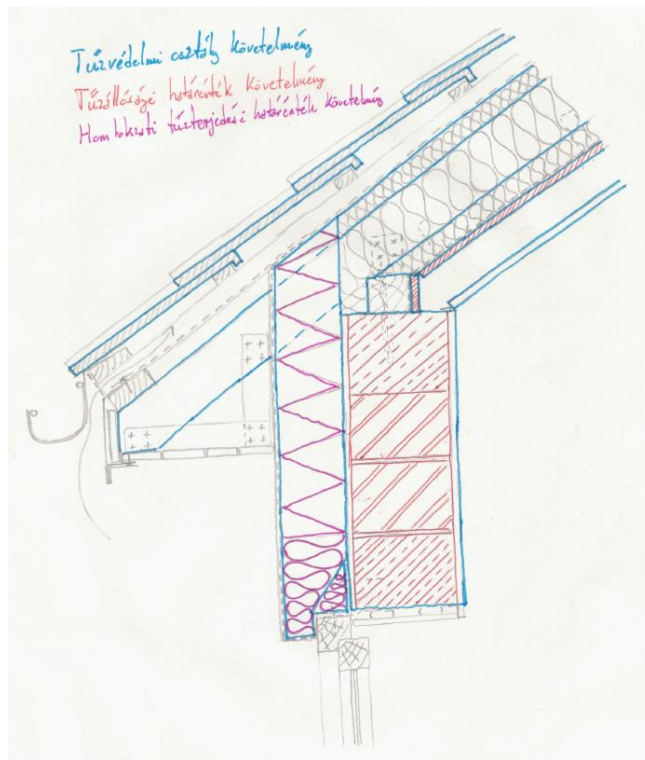 Tűzvédelmi osztály követelmény
Tűzállósági határérték követelmény
Homlokzati tűzterjedési határérték követelmény